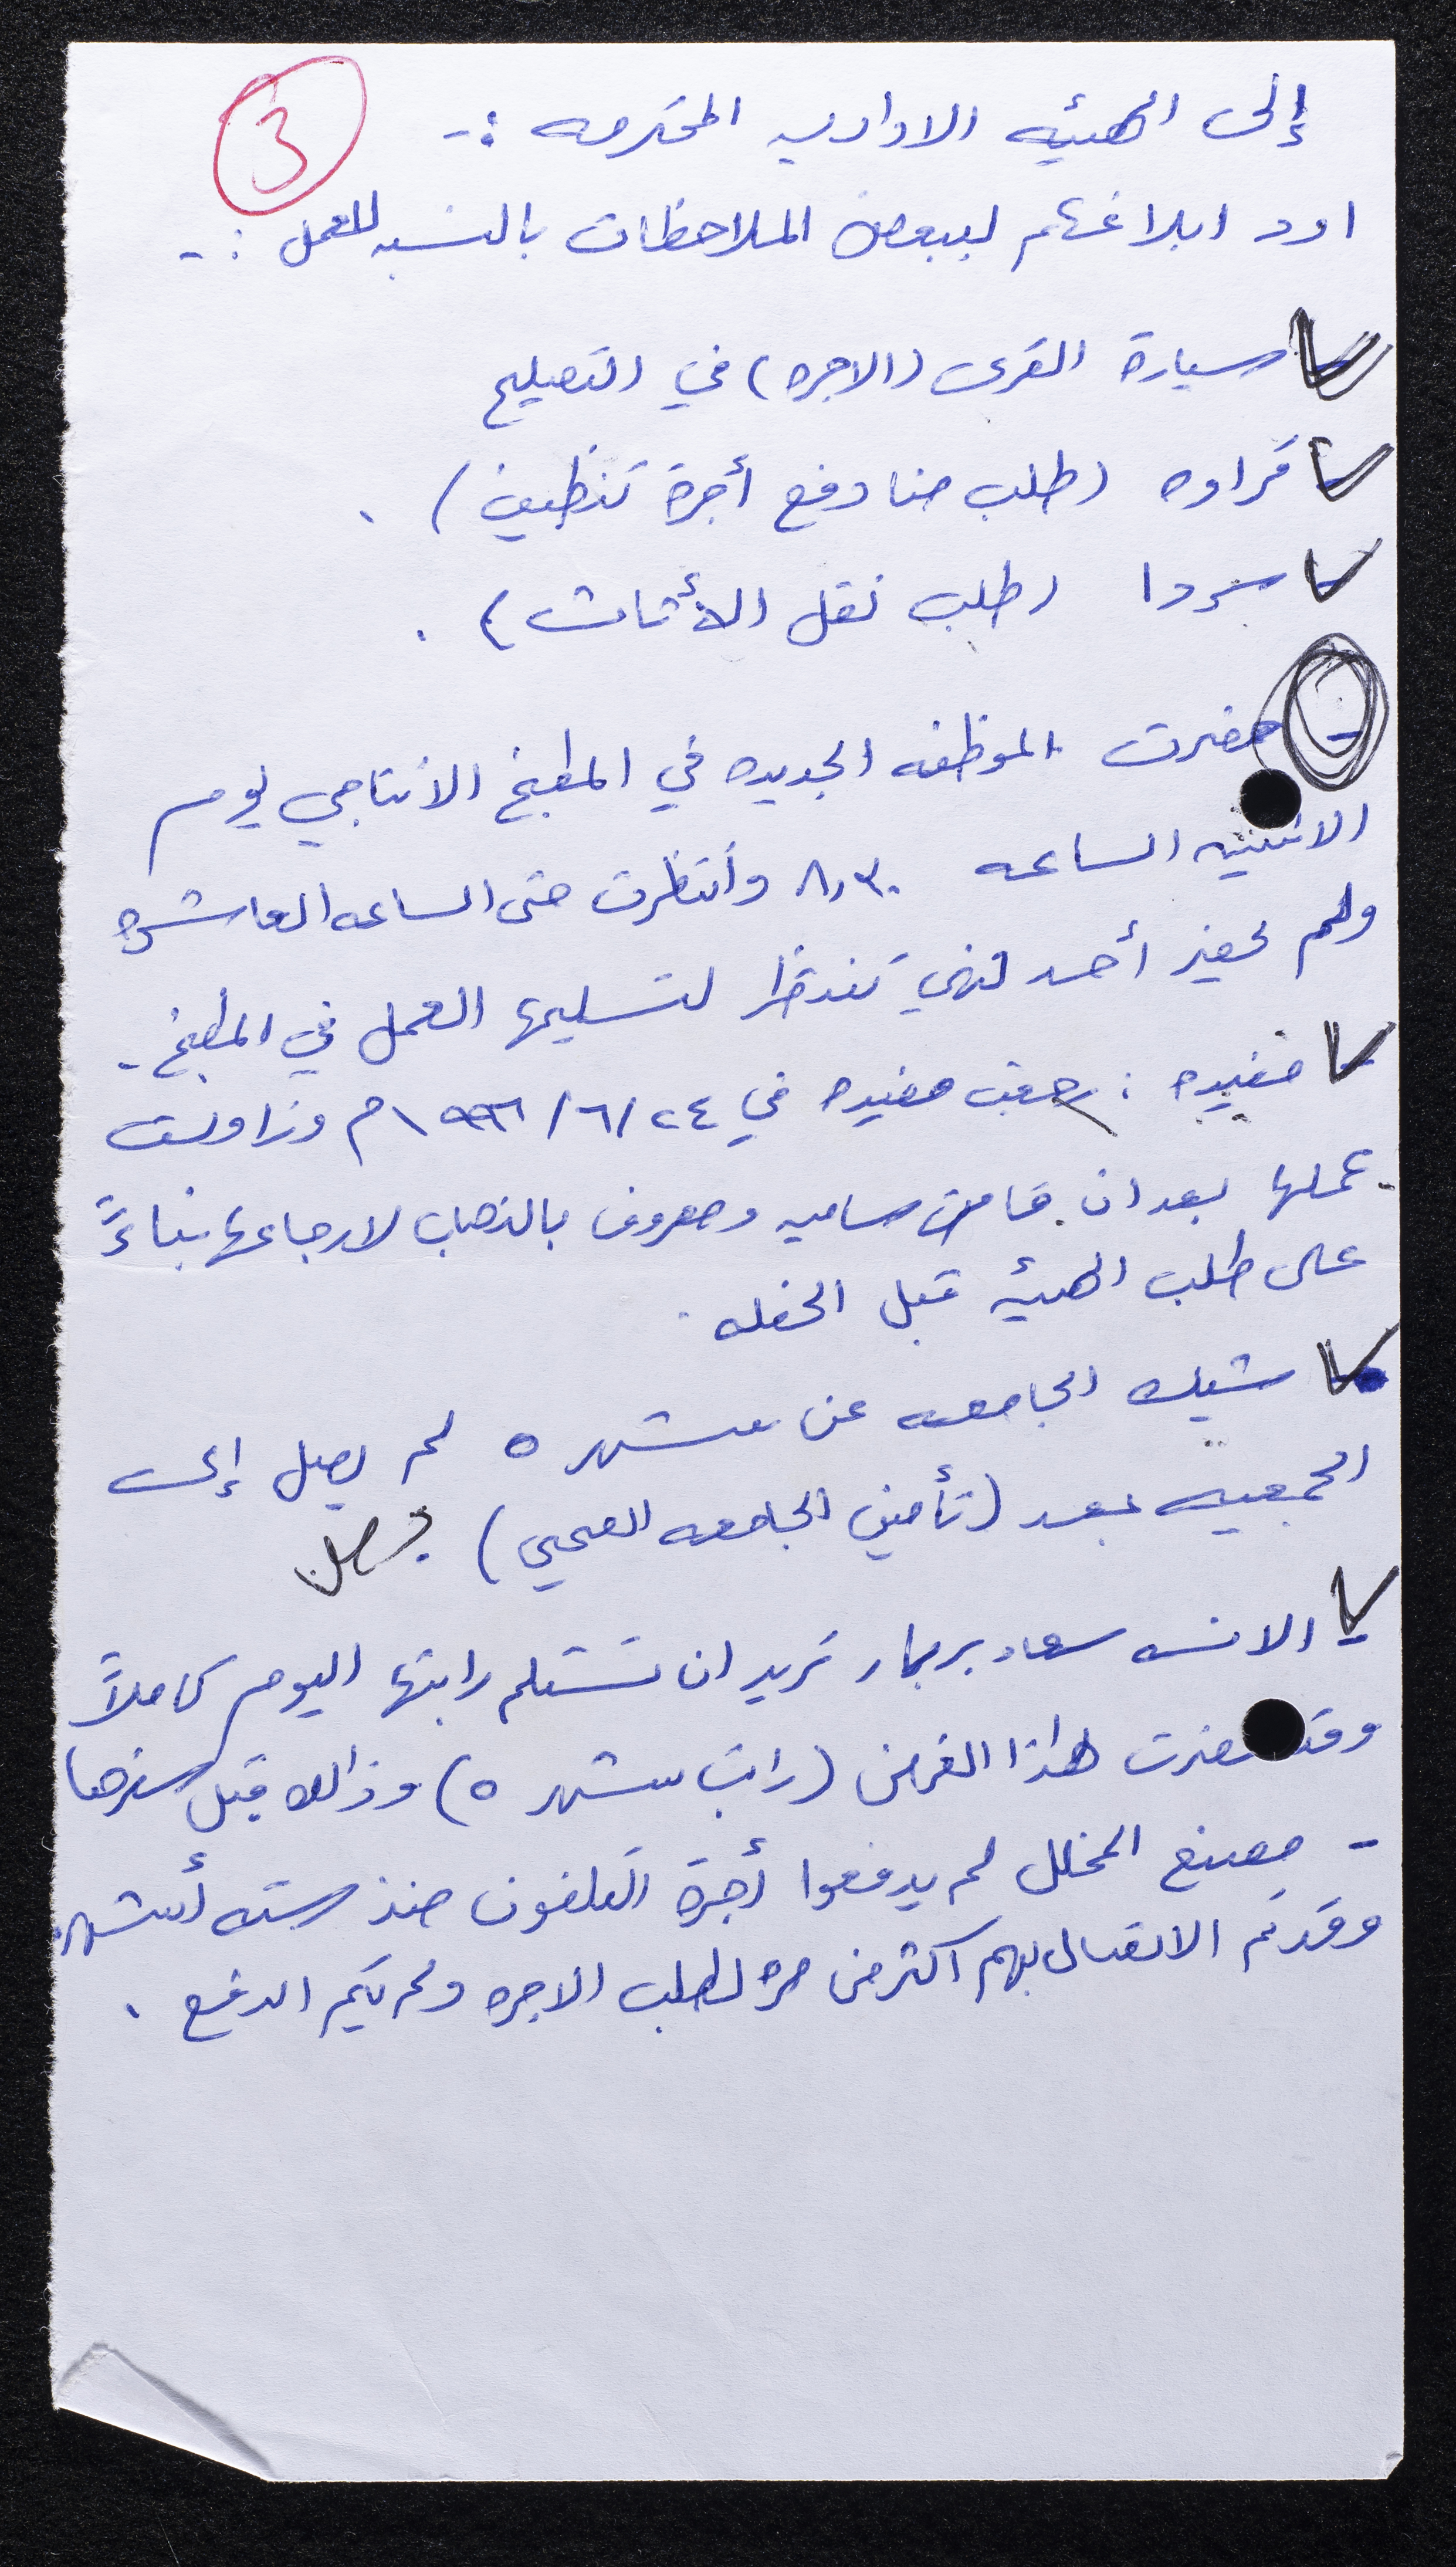 3
إلى الهيئه الاداريه المحترمه :-
اود ابلاغكم ببعض الملاحظات بالنسبه للعمل :-
- سيارة القرى (الاجره) في التصليح
- قراوه (طلب منا دفع أجرة تنظيف) .
- سردا (طلب نقل الأثاث) .
- حضرت الموظفه الجديده في المطبخ الانتاجي يوم
الاثنين الساعه ٨,٣٠ وأنتظرت حتى الساعه العاشره
ولم يحضر أحد فهي تنتظر لتسليمها العمل في المطبخ .
- مفيده : رجعت مفيده في ٢٤/٦/١٩٩٦م وزاولت
عملها بعد ان قامت ساميه ومعروف بالذهاب لارجاعها بناءً
على طلب الهيئه قبل الحفله .
- شيك الجامعه عن شهر ٥ لم يصل إلى
الجمعيه بعد (تأمين الجامعه الصحي)
- الانسه سعاد تريد ان تستلم راتبها اليوم كاملاً
وقد حضرت لهذا الغرض (راتب شهر ٥) وذالك قبل سفرها
- مصنع المخلل لم يدفعوا أجرة التلفون منذ سته أشهر
وقد تم الاتصال بهم اكثر من مره لطلب الاجره ولم يتم الدفع .